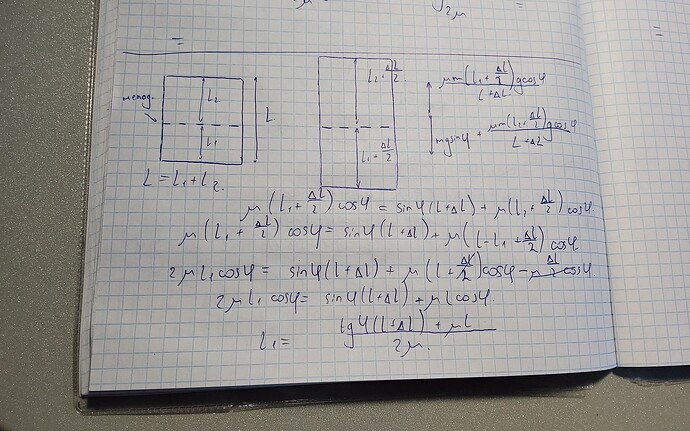 =
2μ
=
L₂
непод.
L
L₁
L = L₁ + L₂.
L₂ + ΔL/2
L₁ + ΔL/2
μm(L₁ + ΔL/2)gcosφ / L+ΔL
mgsinφ + μm(L₂ + ΔL/2)gcosφ / L+ΔL
μ(L₁ + ΔL/2)cosφ = sinφ(L+ΔL) + μ(L₂ + ΔL/2)cosφ.
μ(L₁ + ΔL/2)cosφ = sinφ(L+ΔL) + μ(L-L₁ + ΔL/2)cosφ.
2μL₁cosφ = sinφ(L+ΔL) + μ(L + ΔL/2)cosφ - μ ΔL/2 cosφ
2μL₁cosφ = sinφ(L+ΔL) + μLcosφ.
L₁ = tgφ(L+ΔL) + μL / 2μ.